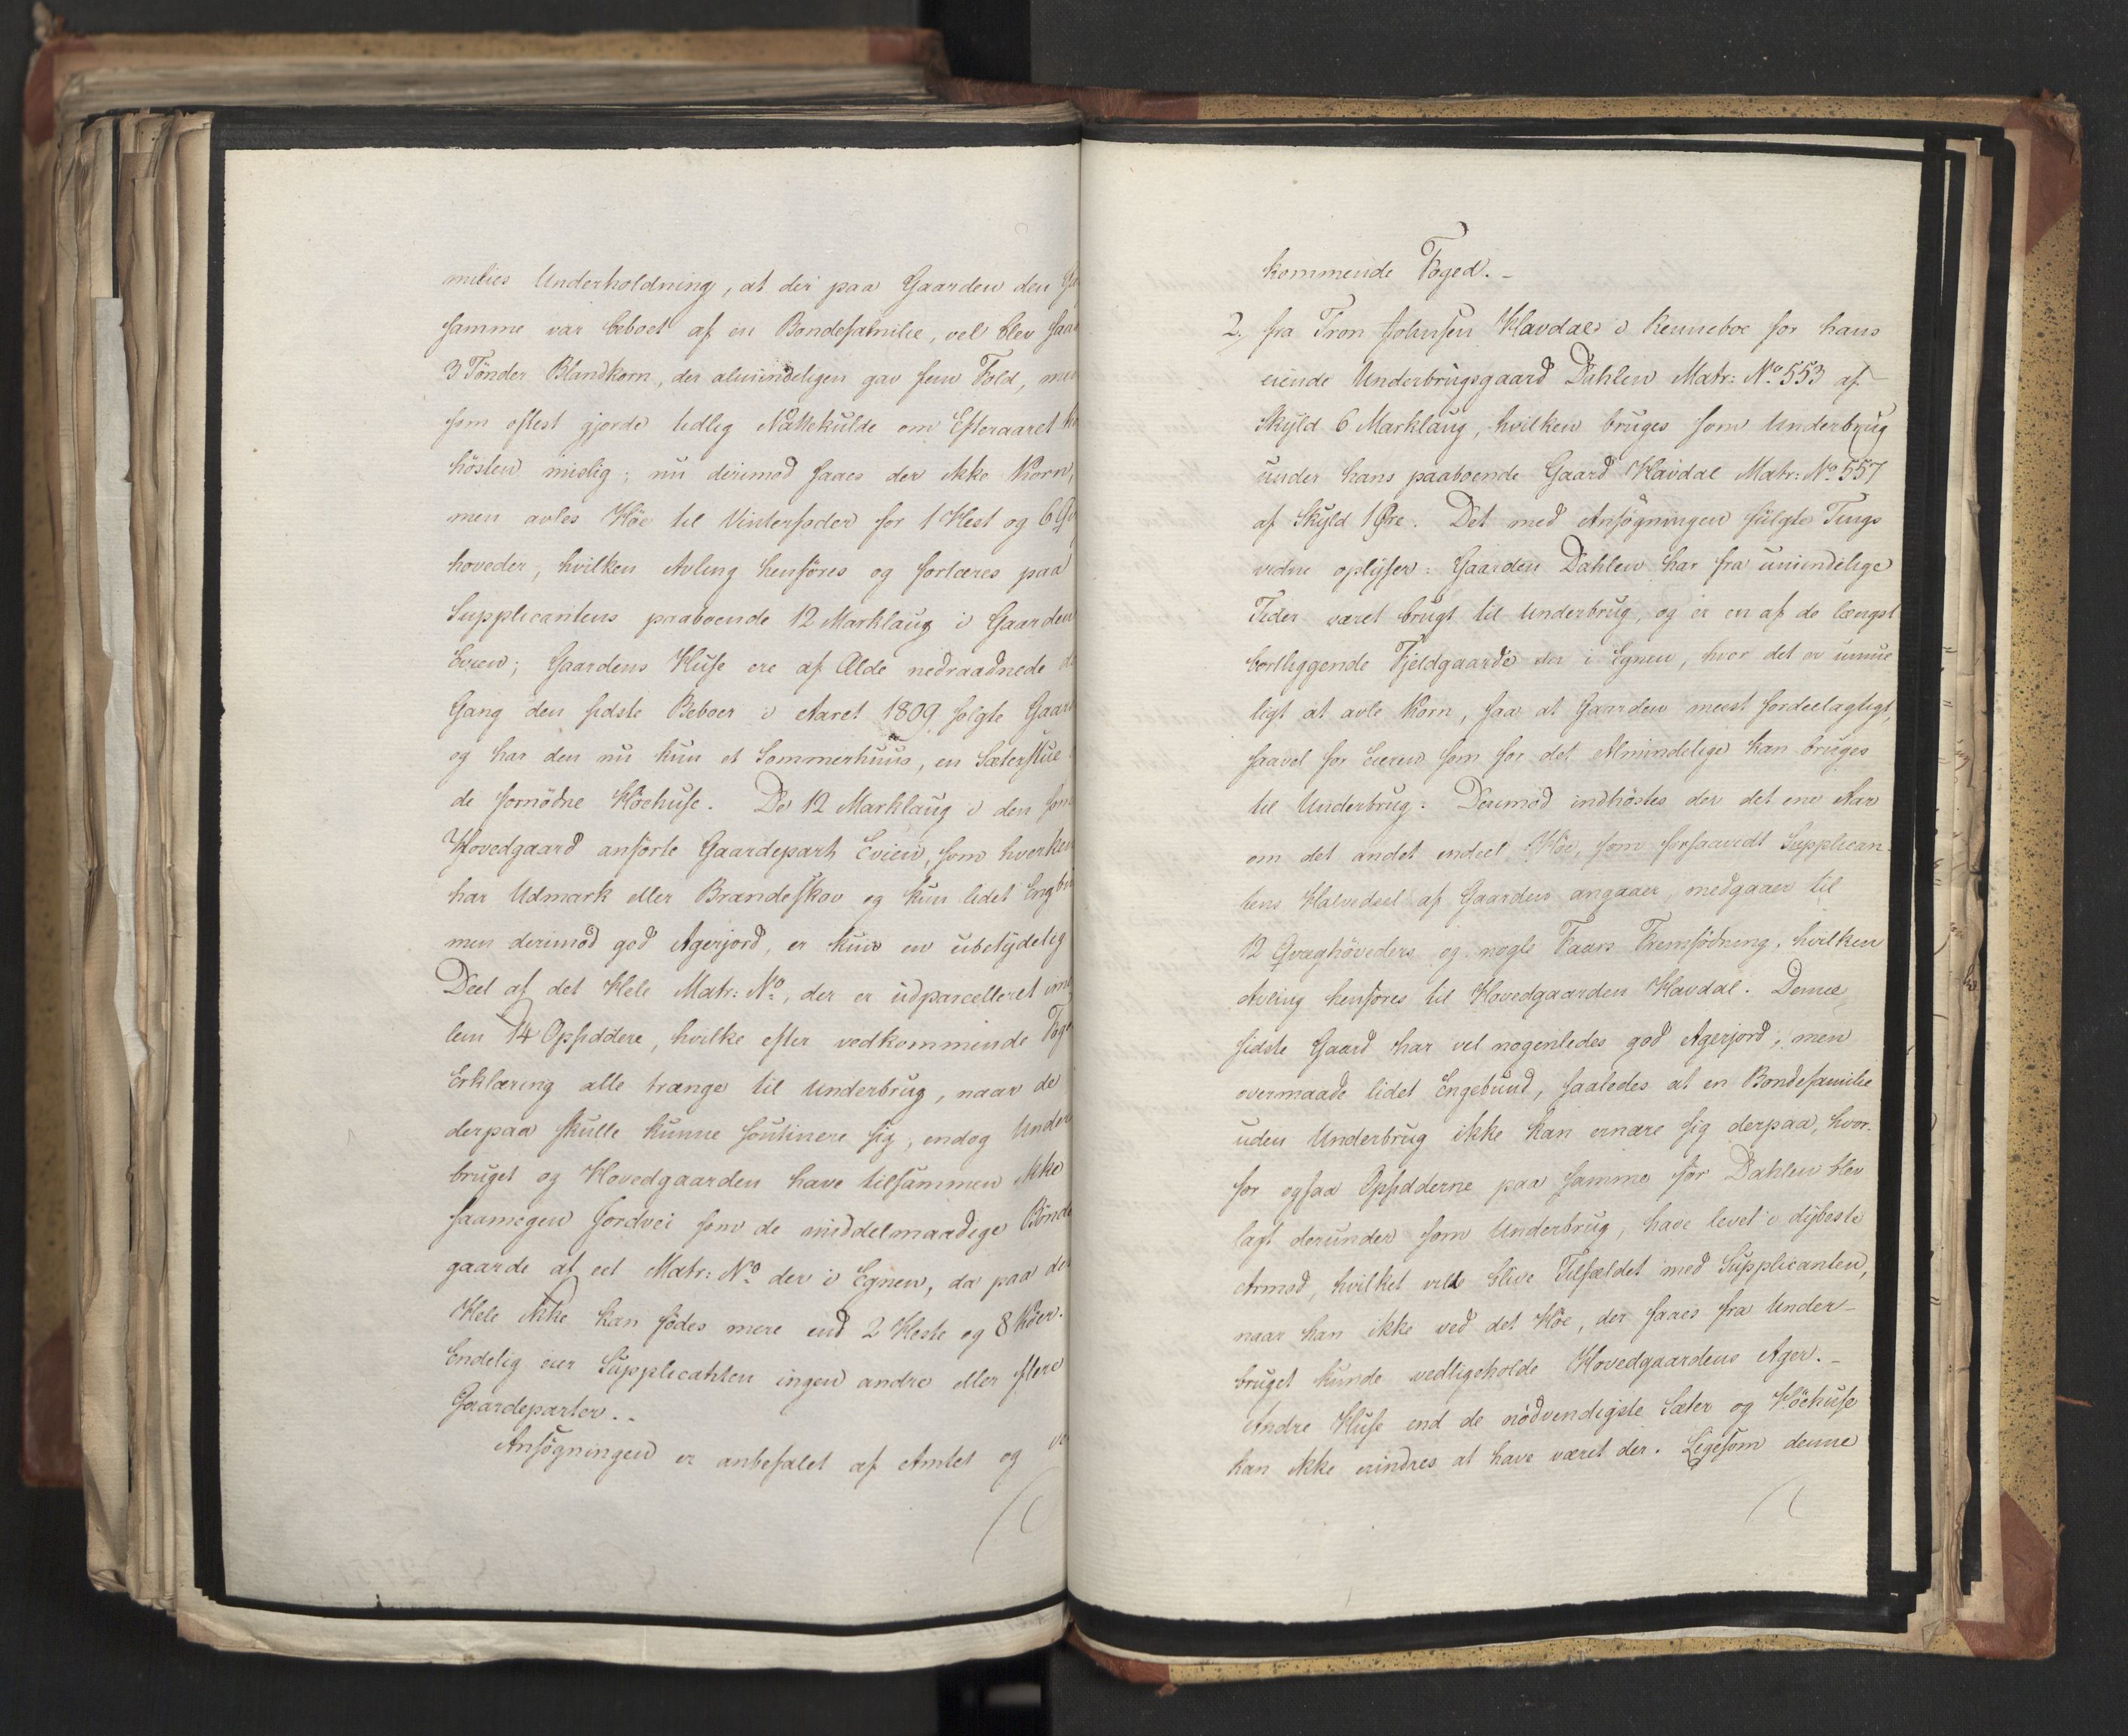 milies Underholdning, at der paa Gaarden den
samme var beboet af en Bondefamilie, vel blev
3 Tønder Blandkorn, der almindeligen gav fem Fold, men
som oftest gjorde tidlig Nattekulde om Efteraaret
høsten mislig; nu derimod saaes der ikke Korn,
men avles Høe til Vinterfoder for 1 Hest og 6
hoveder, hvilken Avling henføres og fortæres paa
Supplicantens paaboende 12 Marklaug i Gaarden
Evien; Gaardens Huse ere af Ælde nedraadnede
Gang den sidste Beboer i Aaret 1809 solgte
og har den nu kun et Sommerhuus, en Sæterstue
de fornødne Høehuse. De 12 Marklaug i den som
Hovedgaard anførte Gaardepart Evien, som hverken
har Udmark eller Brændeskov og kun lidet
men derimod god Agerjord, er kun en ubetydelig
Deel af det Hele Matr: No, der er udparcelleret
lem 14 Opsiddere, hvilke efter vedkommende
Erklæring alle trænge til Underbrug, naar de
derpaa skulle kunne soutinere sig, endog Under
bruget og Hovedgaarden have tilsammen ikke
saamegen Jordvei som de middelmaadige
gaarde af eet Matr: No der i Egnen, da paa det
Hele ikke kan fødes mere end 2 Heste og 8 Køer.
Endelig eier Supplicanten ingen andre eller flere
Gaardeparter..
Ansøgningen er anbefalet af Amtet og
kommende Foged. -
2. fra Tron Johnsen Havdal i Renneboe for hans
eiende Underbrugsgaard Dahlen Matr: No 553 af
Skyld 6 Marklaug, hvilken bruges som Underbrug
under hans paaboende Gaard Havdal Matr: No 557
af Skyld 1 Øre. Det med Ansøgningen fulgte Tings
vidne oplyser: Gaarden Dahlen har fra umindelige
Tider været brugt til Underbrug, og er en af de længst
bortliggende Fjeldgaarde der i Egnen, hvor det er umue
ligt at avle Korn, saa at Gaarden meest fordeelagtigt,
saavel for Eieren som for det Almindelige kan bruges
til Underbrug. Derimod indhøstes der det ene Aar
om det andet endeel Høe, som forsaavidt Supplican-
tens Halvedeel af Gaarden angaaer, medgaaer til
12 Qvæghøveders og nogle Faars Fremfødning, hvilken
Avling henføres til Hovedgaarden Havdal. Denne
sidste Gaard har vel nogenledes god Agerjord, men
overmaade lidet Engebund, saaledes at en Bondefamilie
uden Underbrug ikke kan ernære sig derpaa, hvor-
for ogsaa Opsidderne paa samme før Dahlen blev
lagt derunder som Underbrug, have levet i dybeste
Armod, hvilket vilde blive Tilfældet med Supplicanten,
naar han ikke ved det Høe, der faaes fra Under-
bruget kunde vedligeholde Hovedgaardens Ager. -
Andre Huse end de nødvendigste Sæter og Høehuse
kan ikke erindres at have været der. Ligesom denne